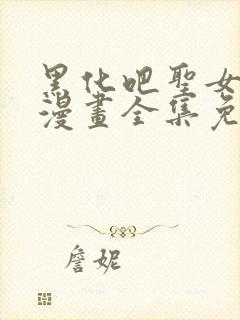 黑化吧聖女
漫畫全集免
詹妮